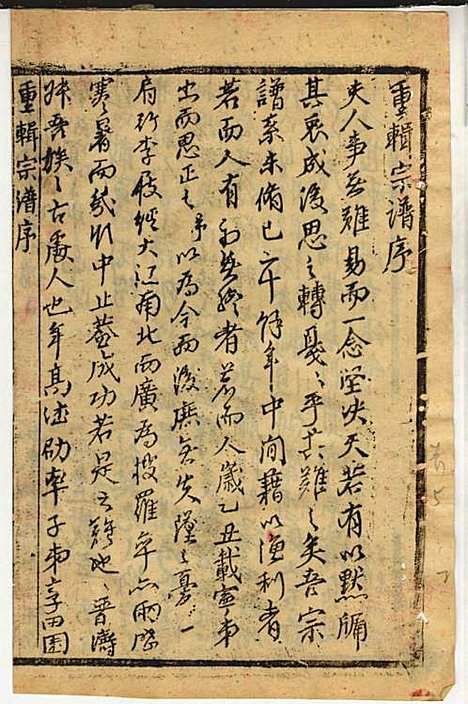 重輯宗譜序
夫人事無難易而一念堅決天若有以默牖
其衷成後思之轉戛〻乎其難之矣吾宗
譜系未脩已六十餘年中间藉以漁利者
若而人有初無終者若而人歲乙丑載寧弟
出而思正之予以為今而後庶無失墜之憂一
肩行李役經大江南北而廣為搜羅年亦兩歷
寒暑而幾以中止蓋成功若是之難也〻晉濤
姊吾族之古處人也年高德劭率子弟享田園
重輯宗譜序